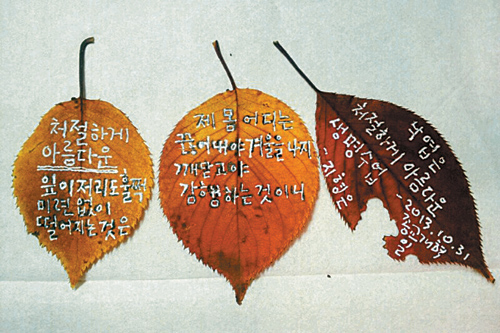 처절하게
아름다운
잎이 저리도 훌쩍
미련 없이
떨어지는 것은
제 몸 어디는
끊어내야 겨울을 나지
깨닫고야
감행하는 것이니
낙엽은
처절하게 아름다운
생명수업
- 지형은
- 2013. 10. 31